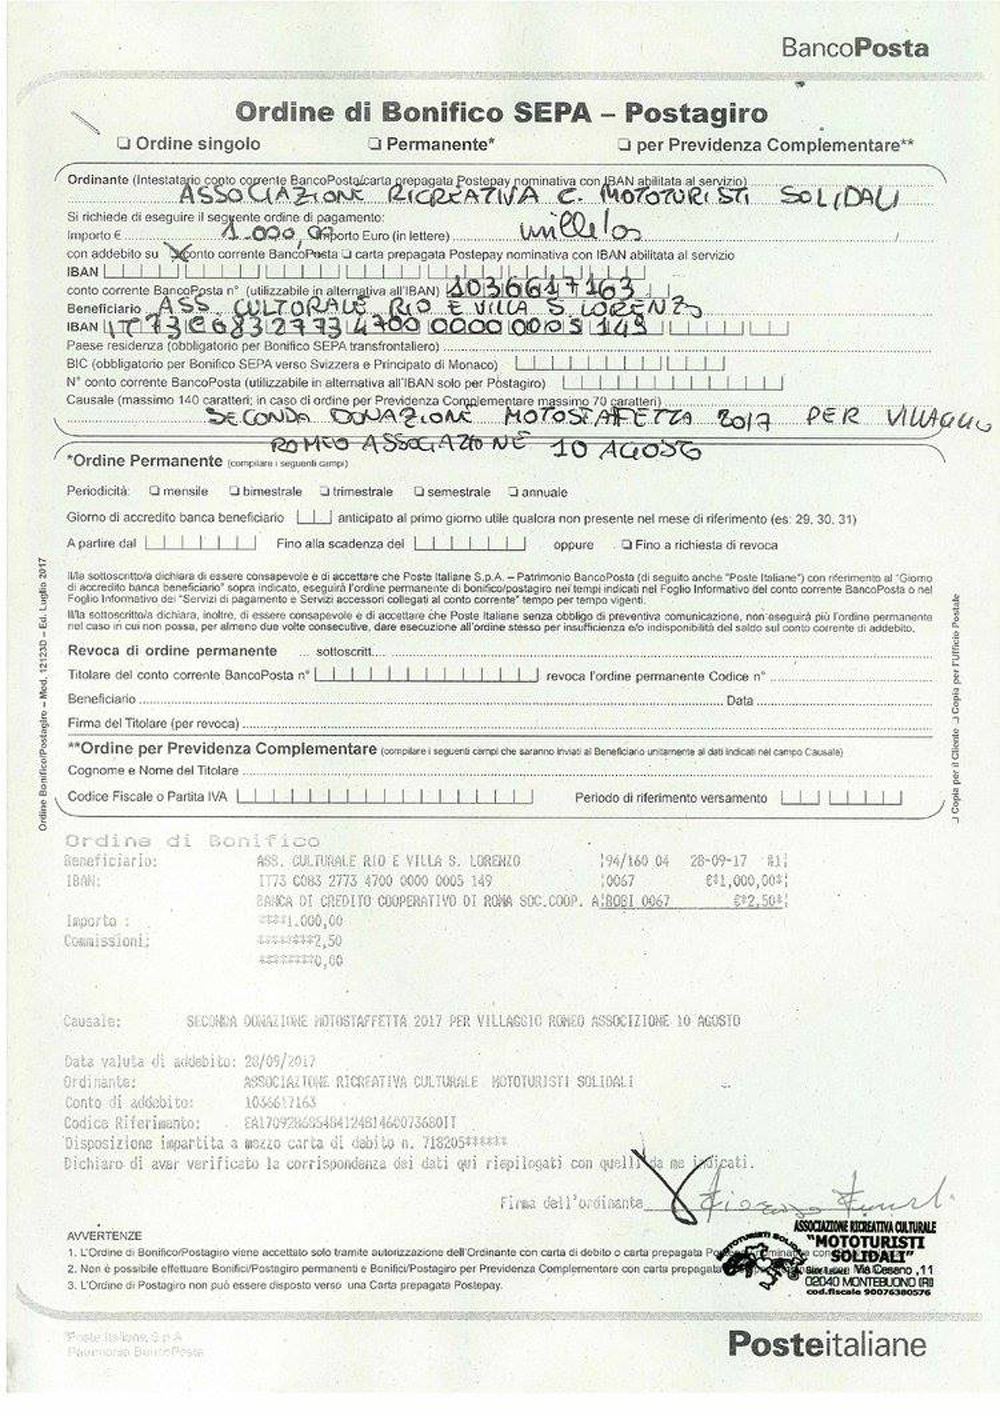 BancoPosta
Ordine di Bonifico SEPA – Postagiro
❏ Ordine singolo ❏ Permanente* ❏ per Previdenza Complementare**
Ordinante (Intestatario conto corrente BancoPosta/carta prepagata Postepay nominativa con IBAN abilitata al servizio)
ASSOCIAZIONE RICREATIVA C. MOTOTURISTI SOLIDALI
Si richiede di eseguire il seguente ordine di pagamento:
Importo € 1.000,00 Importo Euro (in lettere) mille/00
con addebito su ❏ conto corrente BancoPosta ❏ carta prepagata Postepay nominativa con IBAN abilitata al servizio
IBAN
conto corrente BancoPosta n° (utilizzabile in alternativa all'IBAN) 1036617163
Beneficiario ASS. CULTORALE RIO E VILLA S. LORENZO
IBAN IT73C08327734700000000005149
Paese residenza (obbligatorio per Bonifico SEPA transfrontaliero)
BIC (obbligatorio per Bonifico SEPA verso Svizzera e Principato di Monaco)
N° conto corrente BancoPosta (utilizzabile in alternativa all'IBAN solo per Postagiro)
Causale (massimo 140 caratteri; in caso di ordine per Previdenza Complementare massimo 70 caratteri)
SECONDA DONAZIONE MOTOSTAFFETTA 2017 PER VILLAGGIO
ROMEO ASSOCIAZIONE 10 AGOSTO
*Ordine Permanente (compilare i seguenti campi)
Periodicità: ❏ mensile ❏ bimestrale ❏ trimestrale ❏ semestrale ❏ annuale
Giorno di accredito banca beneficiario anticipato al primo giorno utile qualora non presente nel mese di riferimento (es: 29, 30, 31)
A partire dal Fino alla scadenza del oppure ❏ Fino a richiesta di revoca
Il/la sottoscritto/a dichiara di essere consapevole e di accettare che Poste Italiane S.p.A. – Patrimonio BancoPosta (di seguito anche "Poste Italiane") con riferimento al "Giorno
di accredito banca beneficiario" sopra indicato, eseguirà l'ordine permanente di bonifico/postagiro nei tempi indicati nel Foglio Informativo del conto corrente BancoPosta o nel
Foglio Informativo dei "Servizi di pagamento e Servizi accessori collegati al conto corrente" tempo per tempo vigenti.
Il/la sottoscritto/a dichiara, inoltre, di essere consapevole e di accettare che Poste Italiane senza obbligo di preventiva comunicazione, non eseguirà più l'ordine permanente
nel caso in cui non possa, per almeno due volte consecutive, dare esecuzione all'ordine stesso per insufficienza e/o indisponibilità del saldo sul conto corrente di addebito.
Revoca di ordine permanente ... sottoscritt....
Titolare del conto corrente BancoPosta n° revoca l'ordine permanente Codice n°
Beneficiario Data
Firma del Titolare (per revoca)
**Ordine per Previdenza Complementare (compilare i seguenti campi che saranno inviati al Beneficiario unitamente ai dati indicati nel campo Causale)
Cognome e Nome del Titolare
Codice Fiscale o Partita IVA Periodo di riferimento versamento
Ordine Bonifico/Postagiro – Mod. 12123D – Ed. Luglio 2017
❏ Copia per il Cliente ❏ Copia per l'Ufficio Postale
Ordine di Bonifico
Beneficiario: ASS. CULTURALE RIO E VILLA S. LORENZO 94/160 04 28-09-17
IBAN: IT73 C083 2773 4700 0000 0005 149 0067 €*1,000,00*
BANCA DI CREDITO COOPERATIVO DI ROMA SOC.COOP. A 0067 €*2,50*
Importo : ****1.000,00
Commissioni: *******2,50
*******0,00
Causale: SECONDA DONAZIONE MOTOSTAFFETTA 2017 PER VILLAGGIO ROMEO ASSOCIZIONE 10 AGOSTO
Data valuta di addebito: 28/09/2017
Ordinante: ASSOCIAZIONE RICREATIVA CULTURALE MOTOTURISTI SOLIDALI
Conto di addebito: 1036617163
Codice Riferimento:
Disposizione impartita a mezzo carta di debito n. 718205******
Dichiaro di aver verificato la corrispondenza dei dati qui riepilogati con quelli da me indicati.
Firma dell'ordinante
ASSOCIAZIONE RICREATIVA CULTURALE
"MOTOTURISTI
SOLIDALI"
Via Cesano ,11
02040 MONTEBUONO (RI)
cod.fiscale 90076380576
MOTOTURISTI SOLIDALI
AVVERTENZE
1. L'Ordine di Bonifico/Postagiro viene accettato solo tramite autorizzazione dell'Ordinante con carta di debito o carta prepagata
2. Non è possibile effettuare Bonifici/Postagiro permanenti e Bonifici/Postagiro per Previdenza Complementare con carta prepagata
3. L'Ordine di Postagiro non può essere disposto verso una Carta prepagata Postepay.
Poste Italiane S.p.A.
Patrimonio BancoPosta
Posteitaliane